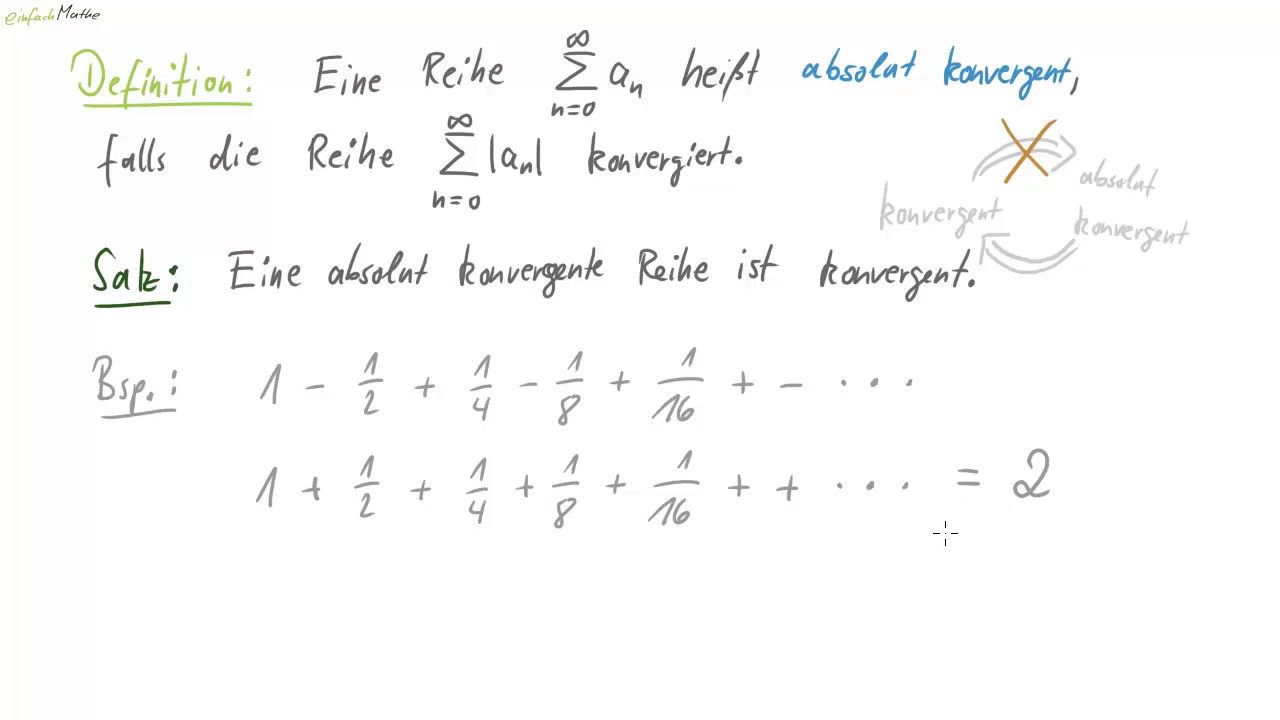 einfachMathe
Definition: Eine Reihe ∞∑n=0 aₙ heißt absolut konvergent,
falls die Reihe ∞∑n=0 |aₙ| konvergiert.
konvergent absolut konvergent
Satz: Eine absolut konvergente Reihe ist konvergent.
Bsp.: 1 - 1/2 + 1/4 - 1/8 + 1/16 + - ...
1 + 1/2 + 1/4 + 1/8 + 1/16 + + ... = 2